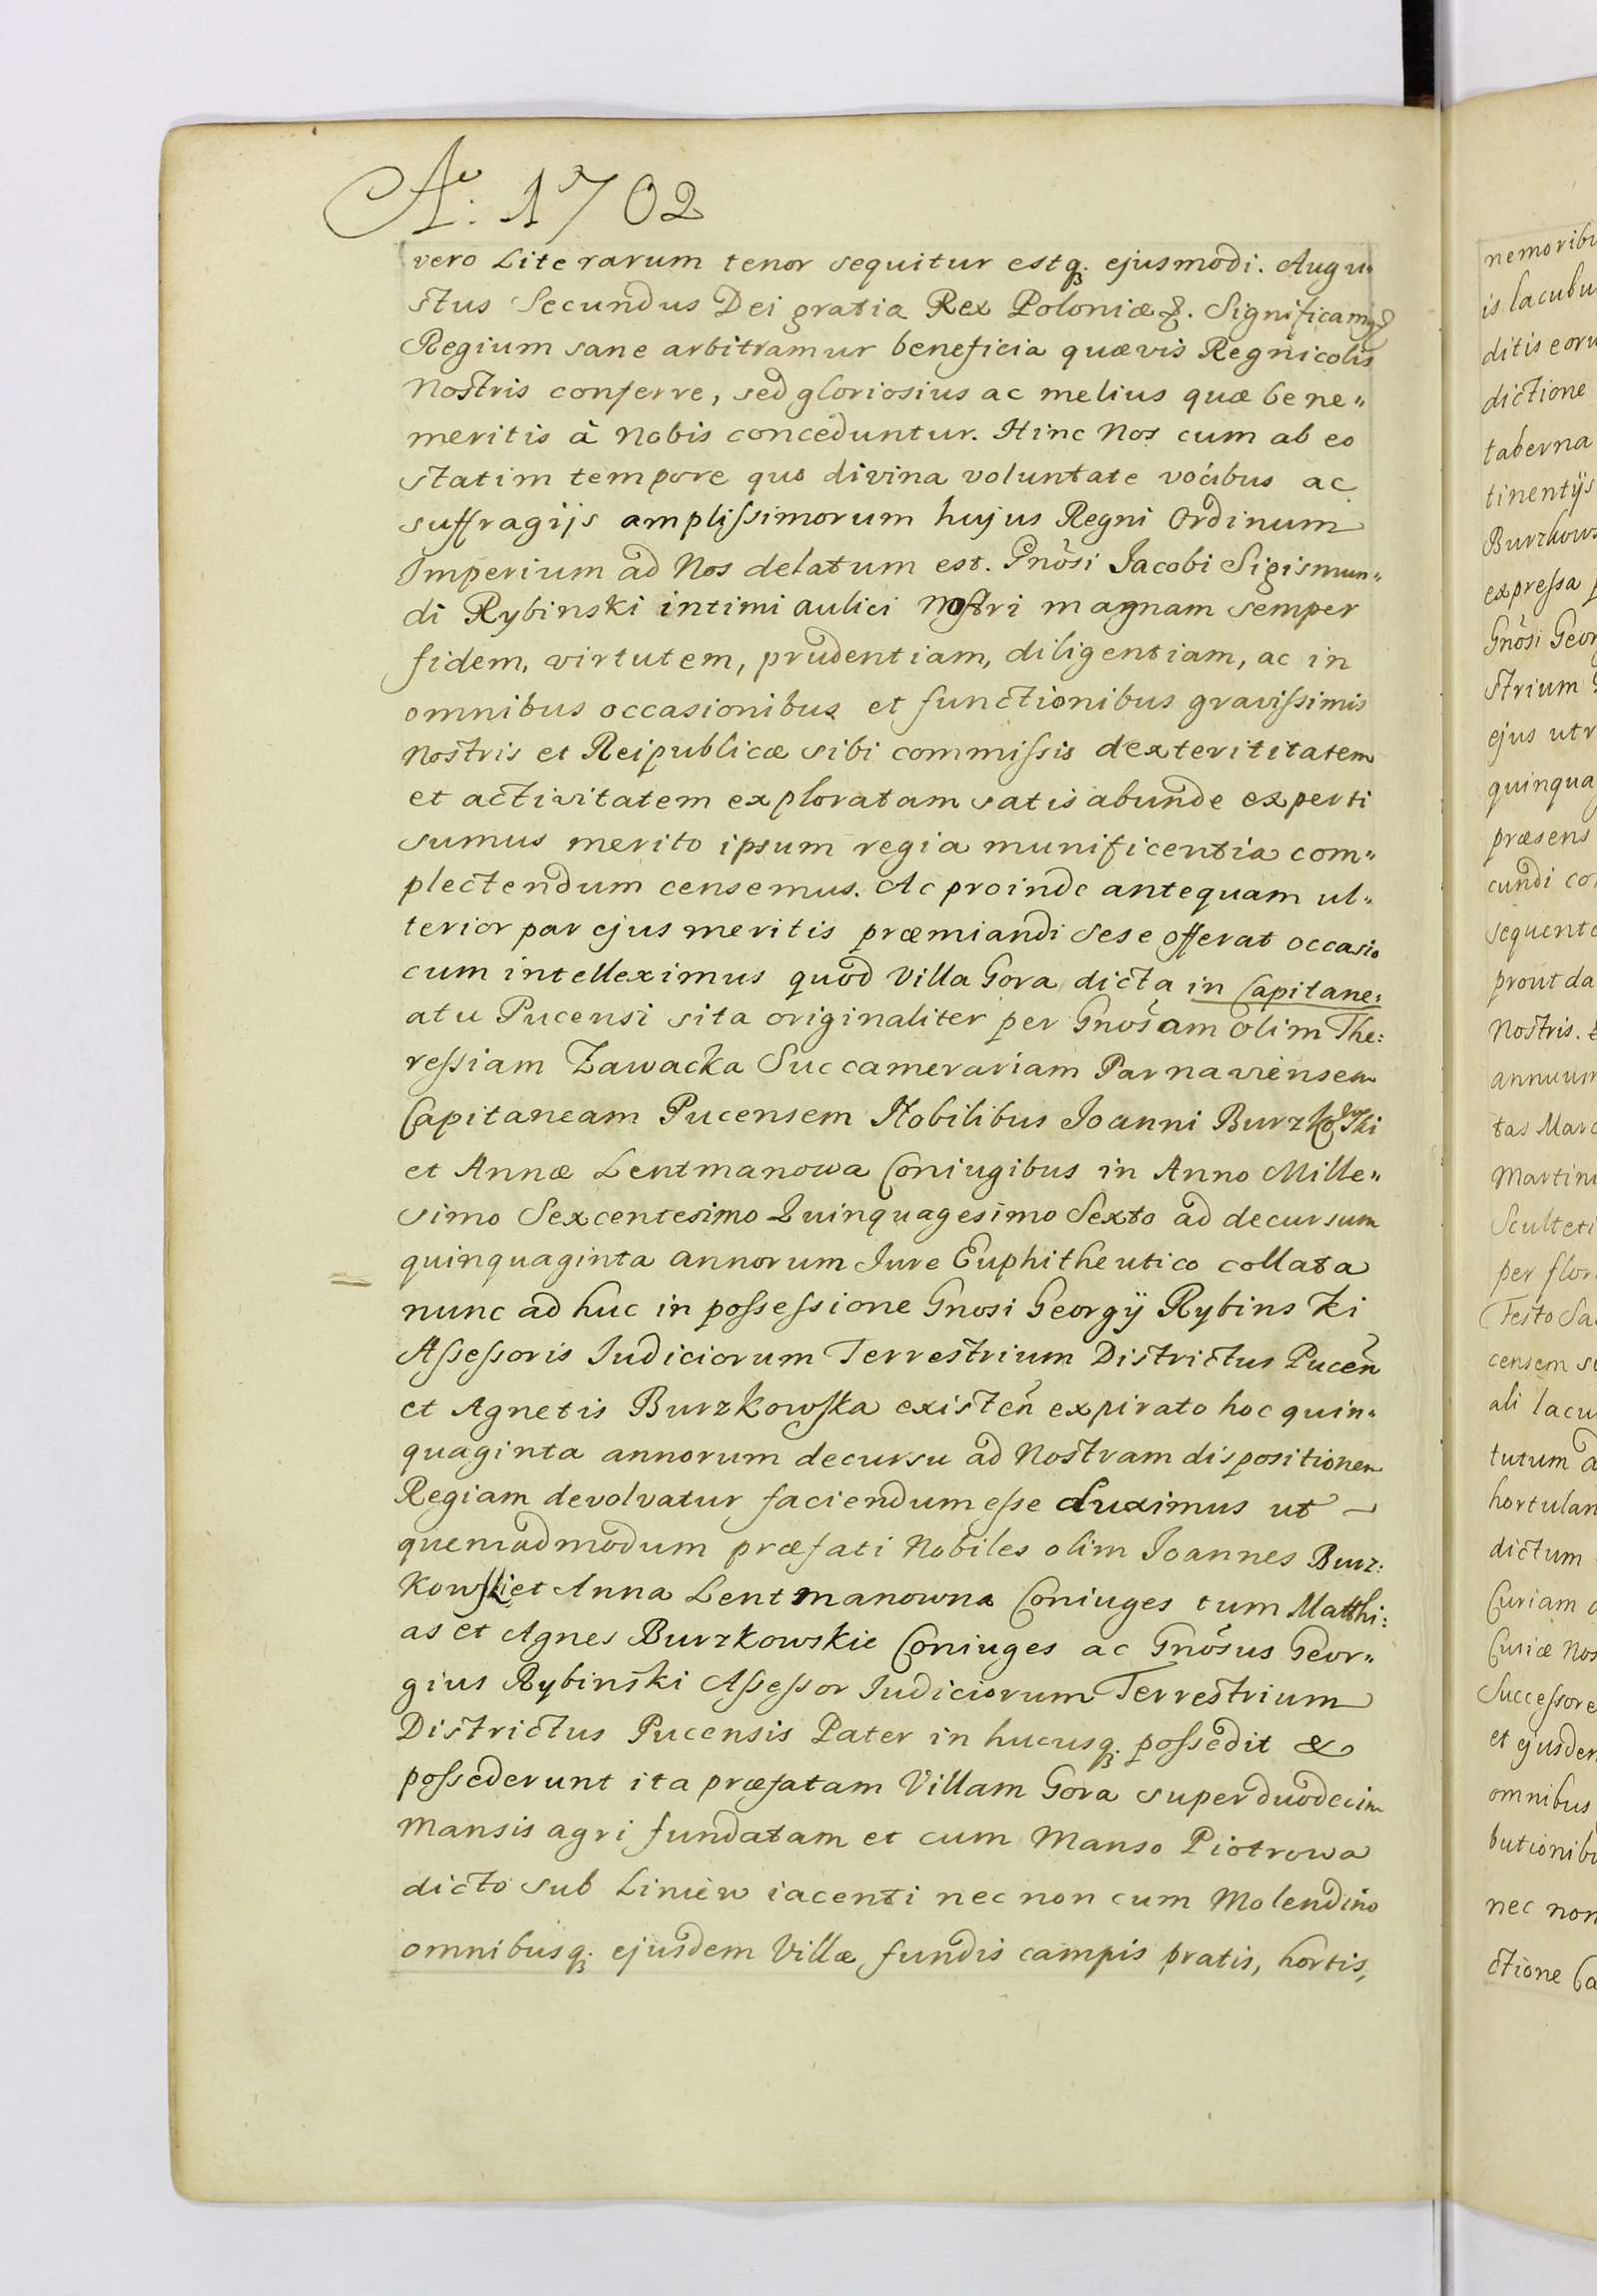 Ao. 1702
vero Literarum tenor sequitur estq3. ejusmodi. Augu„
stus Secundus Dei gratia Rex Poloniæ &. Significamq
Regium sane arbitramur beneficia quævis Regnicolis
Nostris conferre, sed gloriosius ac melius quæ bene„
meritis à Nobis conceduntur. Hinc Nos cum ab eo
statim tempore quo divina voluntate vocibus ac
suffragijs amplissimorum hujus Regni Ordinum
Imperium ad Nos delatum est. Gnõsi Jacobi Sigismun„
di Rybinski intimi aulici Nostri magnam semper
fidem, virtutem, prudentiam, diligentiam, ac in
omnibus occasionibus et functionibus gravissimis
Nostris et Reipublicæ sibi commissis dexterititatem
et activitatem exploratam satis abunde experti
sumus merito ipsum regia munificentia com„
plectendum censemus. Ac proinde antequam ul„
terior par ejus meritis præmiandi sese offerat occasio
cum intelleximus quod Villa Gora dicta in Capitane:
atu Pucensi sita originaliter per Gnõsam olim The:
ressiam Zawacka Succamerariam Parnaviensem
Capitaneam Pucensem Nobilibus Joanni Burzkowski
et Annæ Lentmanowa Coniugibus in Anno Mille„
simo Sexcentesimo Quinquagesimo Sexto ad decursum
quinquaginta annorum Jure Euphitheutico collata
nunc ad huc in possessione Gnosi Georgÿ Rybinski
Assessoris Judiciorum Terrestrium Districtus Pucen̄
et Agnetis Burzkowska existen̄ expirato hoc quin„
quaginta annorum decursu ad Nostram dispositionem
Regiam devolvatur faciendum esse duximus ut
quemadmodum præfati Nobiles olim Joannes Burz:
kowski et Anna Lentmanowna Coniuges tum Matthi:
as et Agnes Burzkowskie Coniuges ac Gnõsus Geor„
gius Rybinski Assessor Judiciorum Terrestrium
Districtus Pucensis Pater in hucusq3. possedit &
possederunt ita præfatam Villam Gora super duodecim
Mansis agri fundatam et cum Manso Piotrowa
dicto sub Liniew iacenti nec non cum Molendino
omnibusq3. ejusdem Villæ fundis campis pratis, hortis,
nemoribu
is lacubu
ditis eoru
dictione
taberna
tinentijs
Burzkows
expressa p
Gnõsi Geor
strium
ejus utr
quinqua
præsens
cundi co
sequente
prout da
Nostris.
annuum
tas Marc
Martini
Sculteti
per flor
Festo Sa
censem s
ali lacu
tutum a
hortulan
dictum
Curiam
Curiæ Nos
Successore
et ejusdem
omnibus
butionibu
nec non
ctione Ca